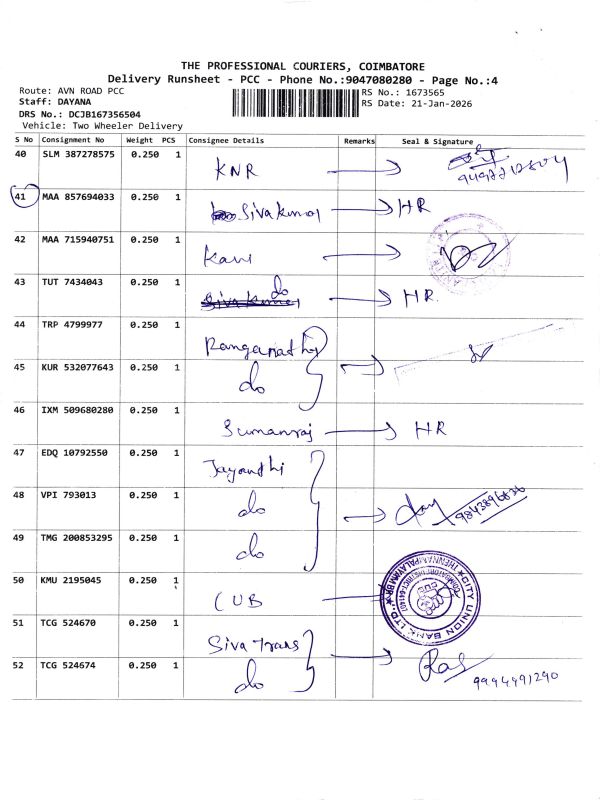 THE PROFESSIONAL COURIERS, COIMBATORE
Delivery Runsheet - PCC - Phone No.:9047080280 - Page No.:4
Route: AVN ROAD PCC
RS No.: 1673565
Staff: DAYANA
RS Date: 21-Jan-2026
DRS No.: DCJB167356504
Vehicle: Two Wheeler Delivery
S No Consignment No Weight PCS Consignee Details Remarks Seal & Signature
40 SLM 387278575 0.250 1 KNR
41 MAA 857694033 0.250 1 Sivakumar HR
42 MAA 715940751 0.250 1 Kavi
43 TUT 7434043 0.250 1 do HR.
44 TRP 4799977 0.250 1 Ranganathan
45 KUR 532077643 0.250 1 do
46 IXM 509680280 0.250 1 Sumanraj HR
47 EDQ 10792550 0.250 1 Jayanthi
48 VPI 793013 0.250 1 do
49 TMG 200853295 0.250 1 do
50 KMU 2195045 0.250 1 CUB CITY UNION BANK LTD.
51 TCG 524670 0.250 1 Siva Trans
52 TCG 524674 0.250 1 do 9994491290